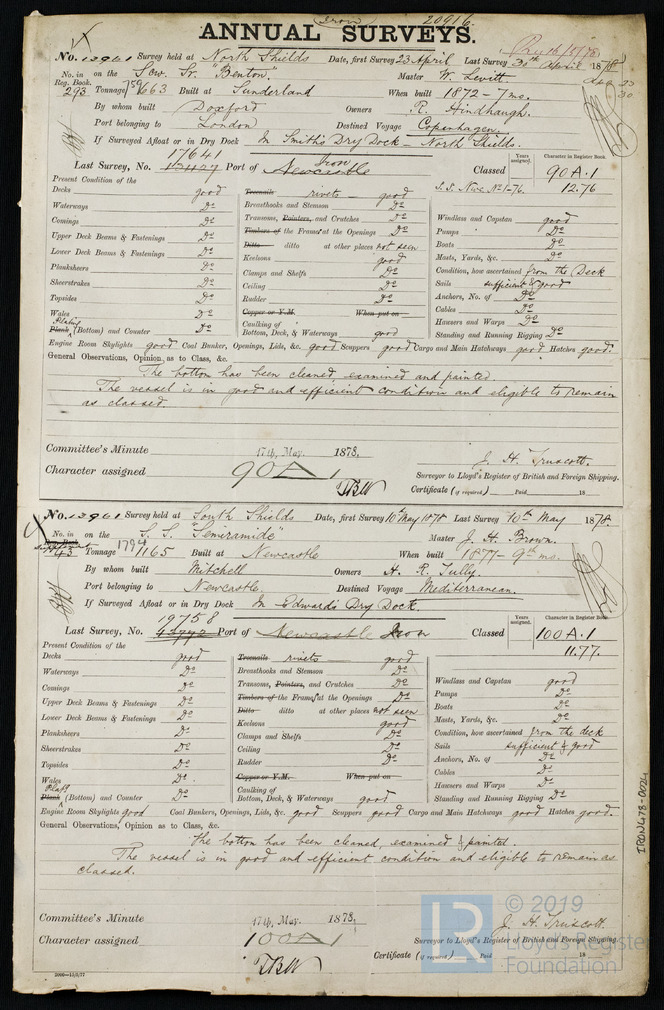 Iron 20916
ANNUAL SURVEYS.
No. 12961 Survey held at North Shields Date, first Survey 23 April Last Survey 30th April 1878
No. in Reg. Book. 293 on the Scw. Sr. "Benton". Master W. Levitt
Tonnage 759 663 Built at Sunderland When built 1872 - 7 mo.
By whom built Doxford Owners R. Hindhaugh.
Port belonging to London Destined Voyage Copenhagen.
If Surveyed Afloat or in Dry Dock In Smith's Dry Dock - North Shields.
17641 Iron
Last Survey, No. Port of Newcastle Classed Years assigned. Character in Register Book. 90 A.1
S.S. Nwe No 1-76. 12.76
Present Condition of the
Decks good Treenails rivets good
Waterways Do Breasthooks and Stemson Do
Comings Do Transoms, Pointers, and Crutches Do Windlass and Capstan good
Upper Deck Beams & Fastenings Do Timbers of the Frames at the Openings Do Pumps Do
Lower Deck Beams & Fastenings Do Ditto ditto at other places not seen Boats Do
Keelsons good Masts, Yards, &c. Do
Planksheers Do Clamps and Shelfs Do Condition, how ascertained from the Deck
Sheerstrakes Do Ceiling Do Sails sufficient & good
Topsides Do Rudder Do Anchors, No. of Do
Wales Do Copper or Y.M. When put on Cables Do
Plating Plank (Bottom) and Counter Do Caulking of Bottom, Deck, & Waterways good Hawsers and Warps Do
Standing and Running Rigging Do
Engine Room Skylights good Coal Bunker, Openings, Lids, &c. good Scuppers good Cargo and Main Hatchways good Hatches good.
General Observations, Opinion as to Class, &c.
The bottom has been cleaned examined and painted.
The vessel is in good and efficient condition and eligible to remain
as classed.
Committee's Minute 17th, May. 1878, J. H. Truscott.
Character assigned 90A1 Surveyor to Lloyd's Register of British and Foreign Shipping.
TBW Certificate (if required) Paid 18
No. 12961 Survey held at South Shields Date, first Survey 10th May 1878 Last Survey 10th May 1878.
No. in Reg. Book. Supplement 43 on the S. S. "Semiramide" Master J. H. Brown.
Tonnage 1794 1165 Built at Newcastle When built 1877 - 9th mo.
By whom built Mitchell Owners H. R. Tully.
Port belonging to Newcastle. Destined Voyage Mediterranean.
If Surveyed Afloat or in Dry Dock In Edwards Dry Dock.
19758
Last Survey, No. Port of Newcastle Iron Classed Years assigned. Character in Register Book. 100 A.1
11.77.
Present Condition of the
Decks good Treenails rivets good
Waterways Do Breasthooks and Stemson Do
Comings Do Transoms, Pointers, and Crutches Do Windlass and Capstan good
Upper Deck Beams & Fastenings Do Timbers of the Frames at the Openings Do Pumps Do
Lower Deck Beams & Fastenings Do Ditto ditto at other places not seen Boats Do
Keelsons good Masts, Yards, &c. Do
Planksheers Do Clamps and Shelfs Do Condition, how ascertained from the deck
Sheerstrakes Do Ceiling Do Sails sufficient & good
Topsides Do Rudder Do Anchors, No. of Do
Wales Do Copper or Y.M. When put on Cables Do
Plank (Bottom) and Counter Do Caulking of Bottom, Deck, & Waterways good Hawsers and Warps Do
Standing and Running Rigging Do
Engine Room Skylights good Coal Bunkers, Openings, Lids, &c. good Scuppers good Cargo and Main Hatchways good Hatches good.
General Observations, Opinion as to Class, &c.
The bottom has been cleaned, examined & painted.
The vessel is in good and efficient condition and eligible to remain as
classed.
Committee's Minute 17th, May. 1878, J. H. Truscott.
Character assigned 100A1 Surveyor to Lloyd's Register of British and Foreign Shipping
TBW Certificate (if required) Paid 18
IRON478-0024
LR © 2019 Lloyd's Register Foundation